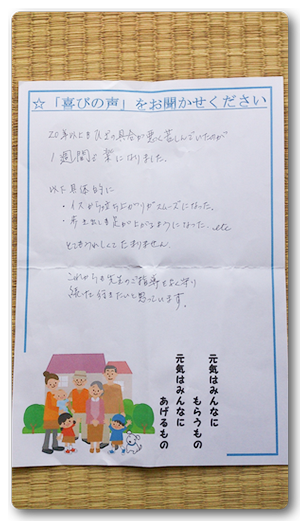 ☆「喜びの声」をお聞かせください
20年以上もひざの具合が悪く苦しんでいたのが
1週間で楽になりました。
以下具体的に
・イスから立ち上がりがスムーズになった。
・歩き出しも足が上がるようになった etc
とてもうれしくてたまりません。
これからも先生のご指導をなく守り
続けて行きたいと思っています。
元気はみんなに
もらうもの
元気はみんなに
あげるもの